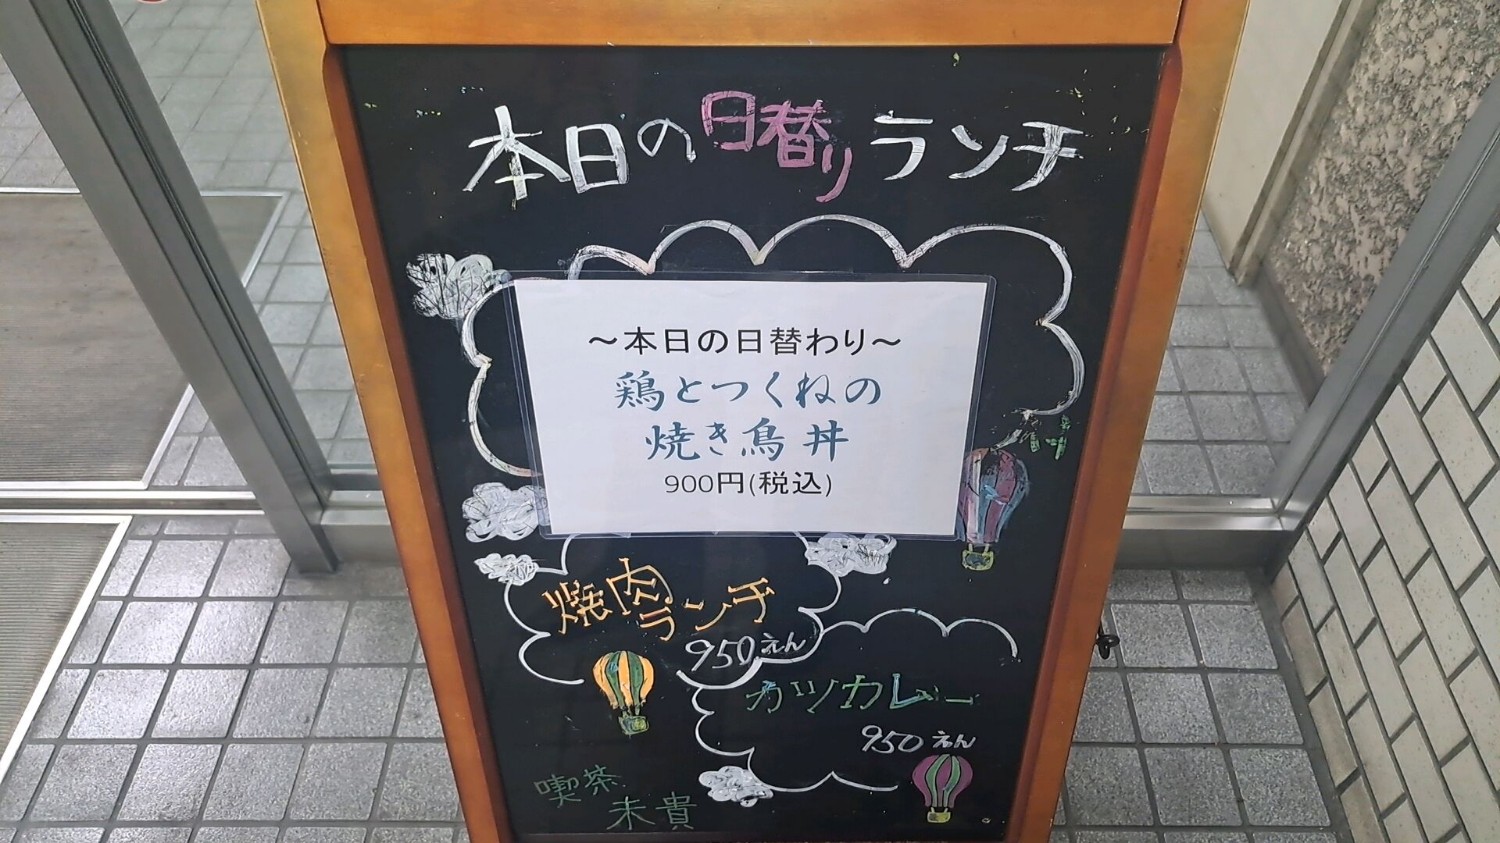 本日の日替りランチ
〜本日の日替わり〜
鶏とつくねの
焼き鳥丼
900円(税込)
焼肉
ランチ
950えん
カツカレー
950えん
喫茶
未貴